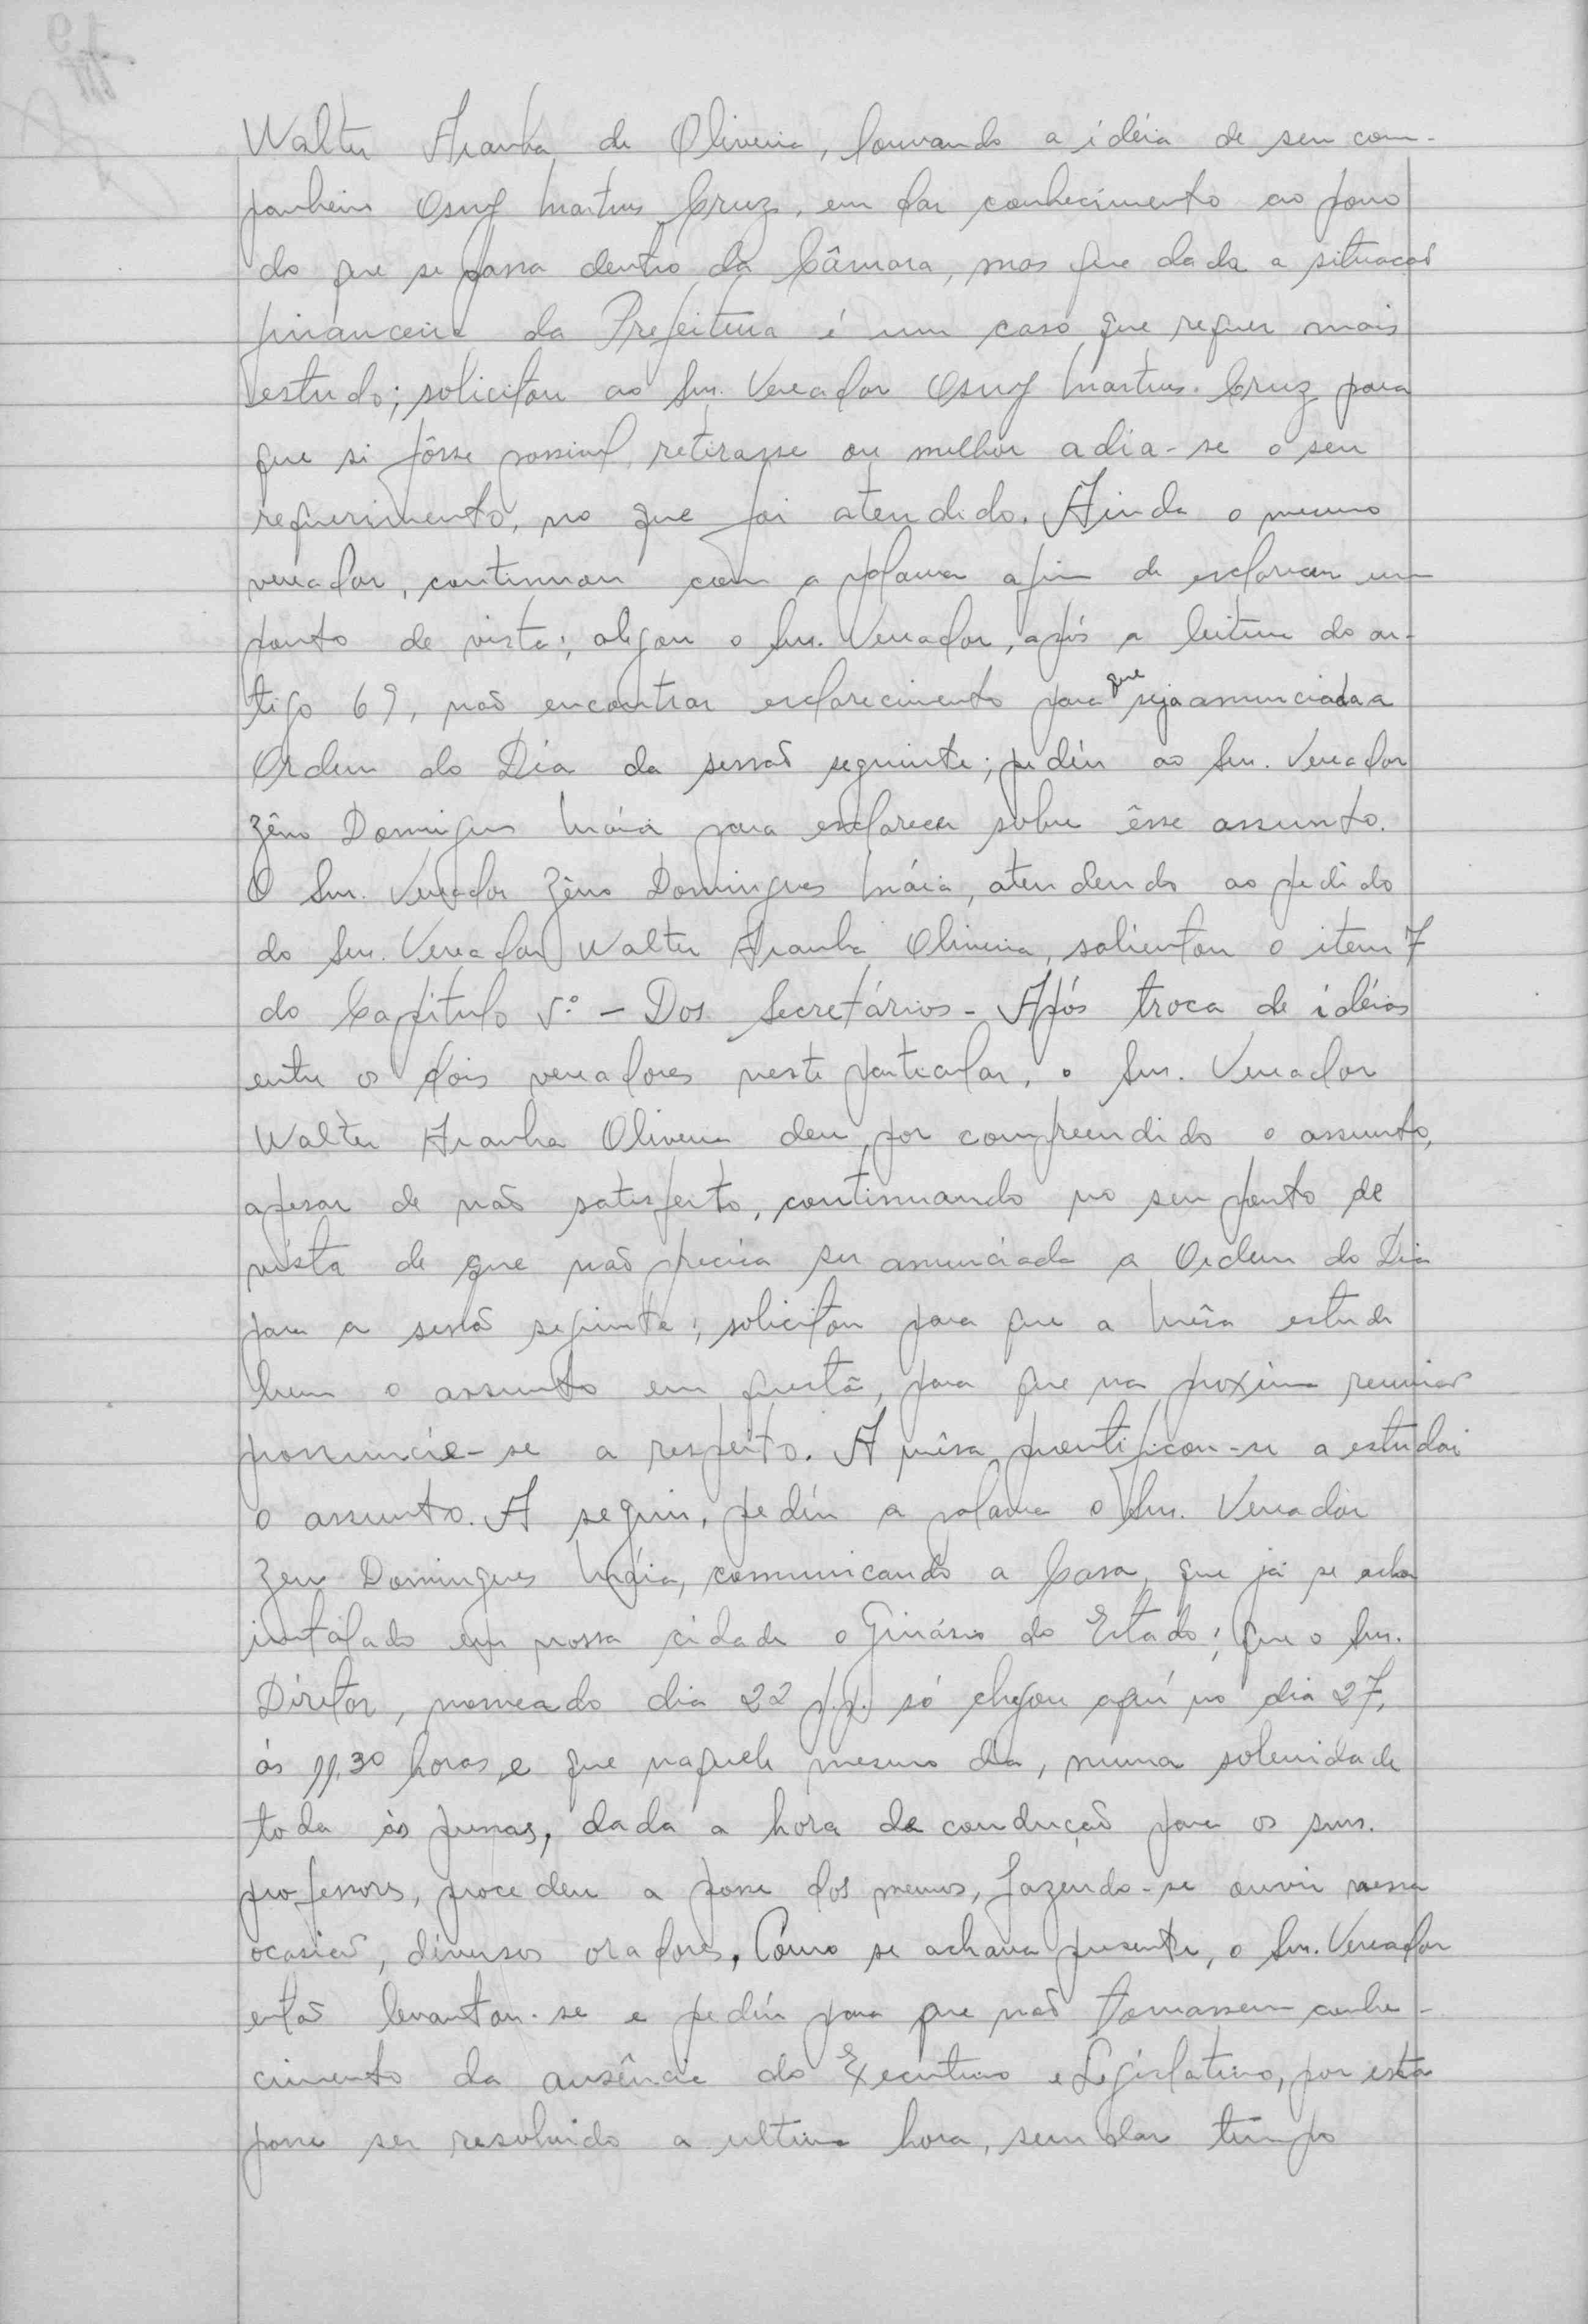 Walter Aranha de Oliveira, louvando a idéia de seu com-
panheiro Osny Martins Cruz, em dar conhecimento ao povo
do que se passa dentro da Câmara, mas que dada a situação
financeira da Prefeitura é um caso que requer mais
estudo; solicitou ao Snr. Vereador Osny Martins Cruz para
que si fôsse possivel, retirasse ou melhor adia-se o seu
requerimento, no que foi atendido. Ainda o mesmo
vereador, continuou com a palavra afim de esclarecer um
ponto de vista; alegou o Snr. Vereador, após a leitura do ar-
tigo 69, não encontrar esclarecimento para que seja anunciada a
Ordem do Dia da sessão seguinte; pediu ao Snr. Vereador
Zêno Domingues Máia para esclarecer sobre êsse assunto.
O Snr. Vereador Zêno Domingues Máia, atendendo ao pedido
do Snr. Vereador Walter Aranha Oliveira, salientou o item 7
do Capítulo 5º - Dos Secretários - Após troca de idéias
entre os dois vereadores neste particular, o Snr. Vereador
Walter Aranha Oliveira deu por compreendido o assunto,
apesar de não satisfeito, continuando no seu ponto de
vista de que não precisa ser anunciada a Ordem do Dia
para a sessão seguinte; solicitou para que a Mêsa estude
bem o assunto em questão, para que na proxima reunião
pronuncie-se a respeito. A mêsa prontificou-se a estudar
o assunto. A seguir, pediu a palavra o Snr. Vereador
Zeno Domingues Máia, comunicando a Casa, que já se acha
instalado em nossa cidade o Ginásio do Estado; que o Snr.
Diretor, nomeado dia 22 p.p. só chegou aquí no dia 27,
ás 11,30 horas, e que naquele mesmo dia, numa solenidade
toda às pressas, dada a hora de condução para os snrs.
professores, procedeu a posse dos mesmos, fazendo-se ouvir nessa
ocasião, diversos oradores. Como se achava presente, o Snr. Vereador
então levantou-se e pediu para que não tomassem conhe-
cimento da ausência do Executivo e Legislativo, por esta
posse ser resolvido a ultima hora, sem dar tempo